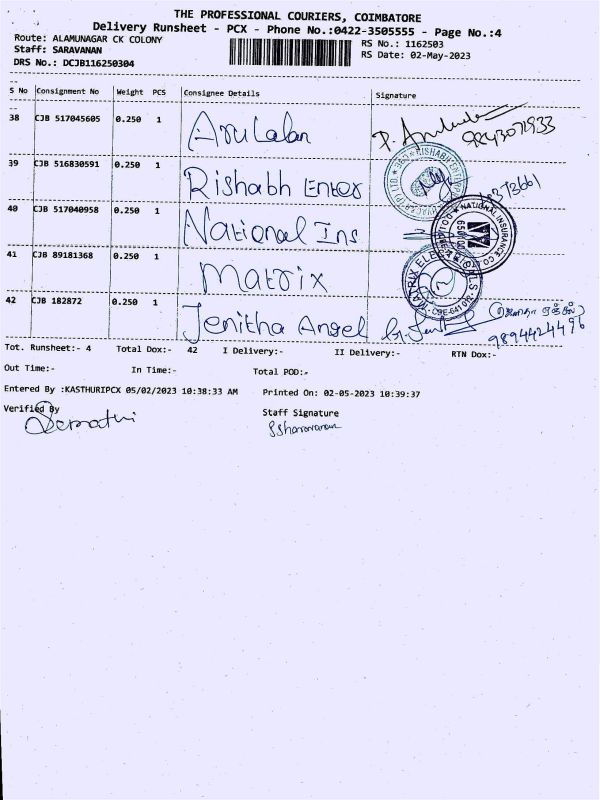 THE PROFESSIONAL COURIERS, COIMBATORE
Delivery Runsheet - PCX - Phone No.:0422-3505555 - Page No.:4
Route: ALAMUNAGAR CK COLONY RS No.: 1162503
Staff: SARAVANAN RS Date: 02-May-2023
DRS No.: DCJB116250304
S No Consignment No Weight PCS Consignee Details Signature
38 CJB 517045605 0.250 1 Arulalan
39 CJB 516830591 0.250 1 Rishabh Enter
40 CJB 517040958 0.250 1 National Ins
41 CJB 89181368 0.250 1 Matrix
42 CJB 182872 0.250 1 Jenitha Angel 9894424496
Tot. Runsheet:- 4 Total Dox:- 42 I Delivery:- II Delivery:- RTN Dox:-
Out Time:- In Time:- Total POD:-
Entered By :KASTHURIPCX 05/02/2023 10:38:33 AM Printed On: 02-05-2023 10:39:37
Verified By Staff Signature